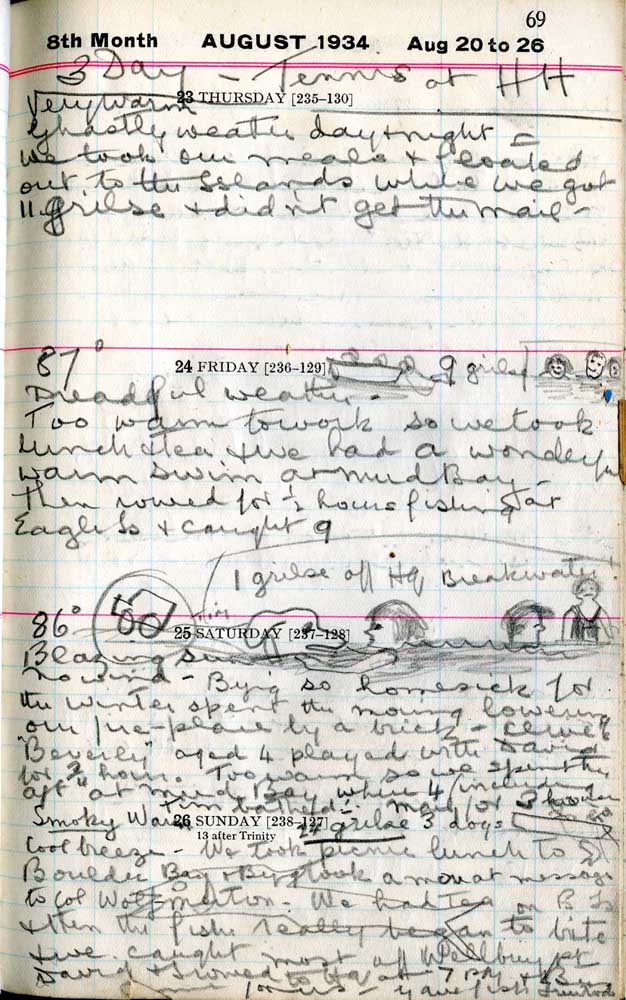 69
8th Month AUGUST 1934 Aug 20 to 26
3 Day – Tennis at HH
23 THURSDAY [235–130]
Very warm
Ghastly weather day & night =
we took our meals & floated
out to the Islands while we got
11 grilse & didn't get the mail –
87° 24 FRIDAY [236–129] 9 grilse
Dreadful weather –
Too warm to work so we took
lunch & tea & we had a wonderful
warm swim at Mud Bay –
then rowed for ½ hours fishing at
Eagle Is & caught 9
1 grilse off Hq Breakwater
Tim
86° 25 SATURDAY [237–128]
Blazing sun
no wind – Byng so homesick for
the winter spent the morning lowering
our fire-place by a brick –
"Beverly" aged 4 played with David
for hour. Too warm so we spent the
aft at Mud Bay where 4 including
Tim bathed – mail for 3
Smoky Warm 26 SUNDAY [238–127] 24 grilse 3 dogs
13 after Trinity
Cool breeze – We took picnic lunch to
Boulder Bay & Byng took a message
to Col Wolf-Merton – We had tea on B Is
& then the fish really began to bite
& we caught most off Wellbury pt
David & I rowed to Hq at 7 PM &